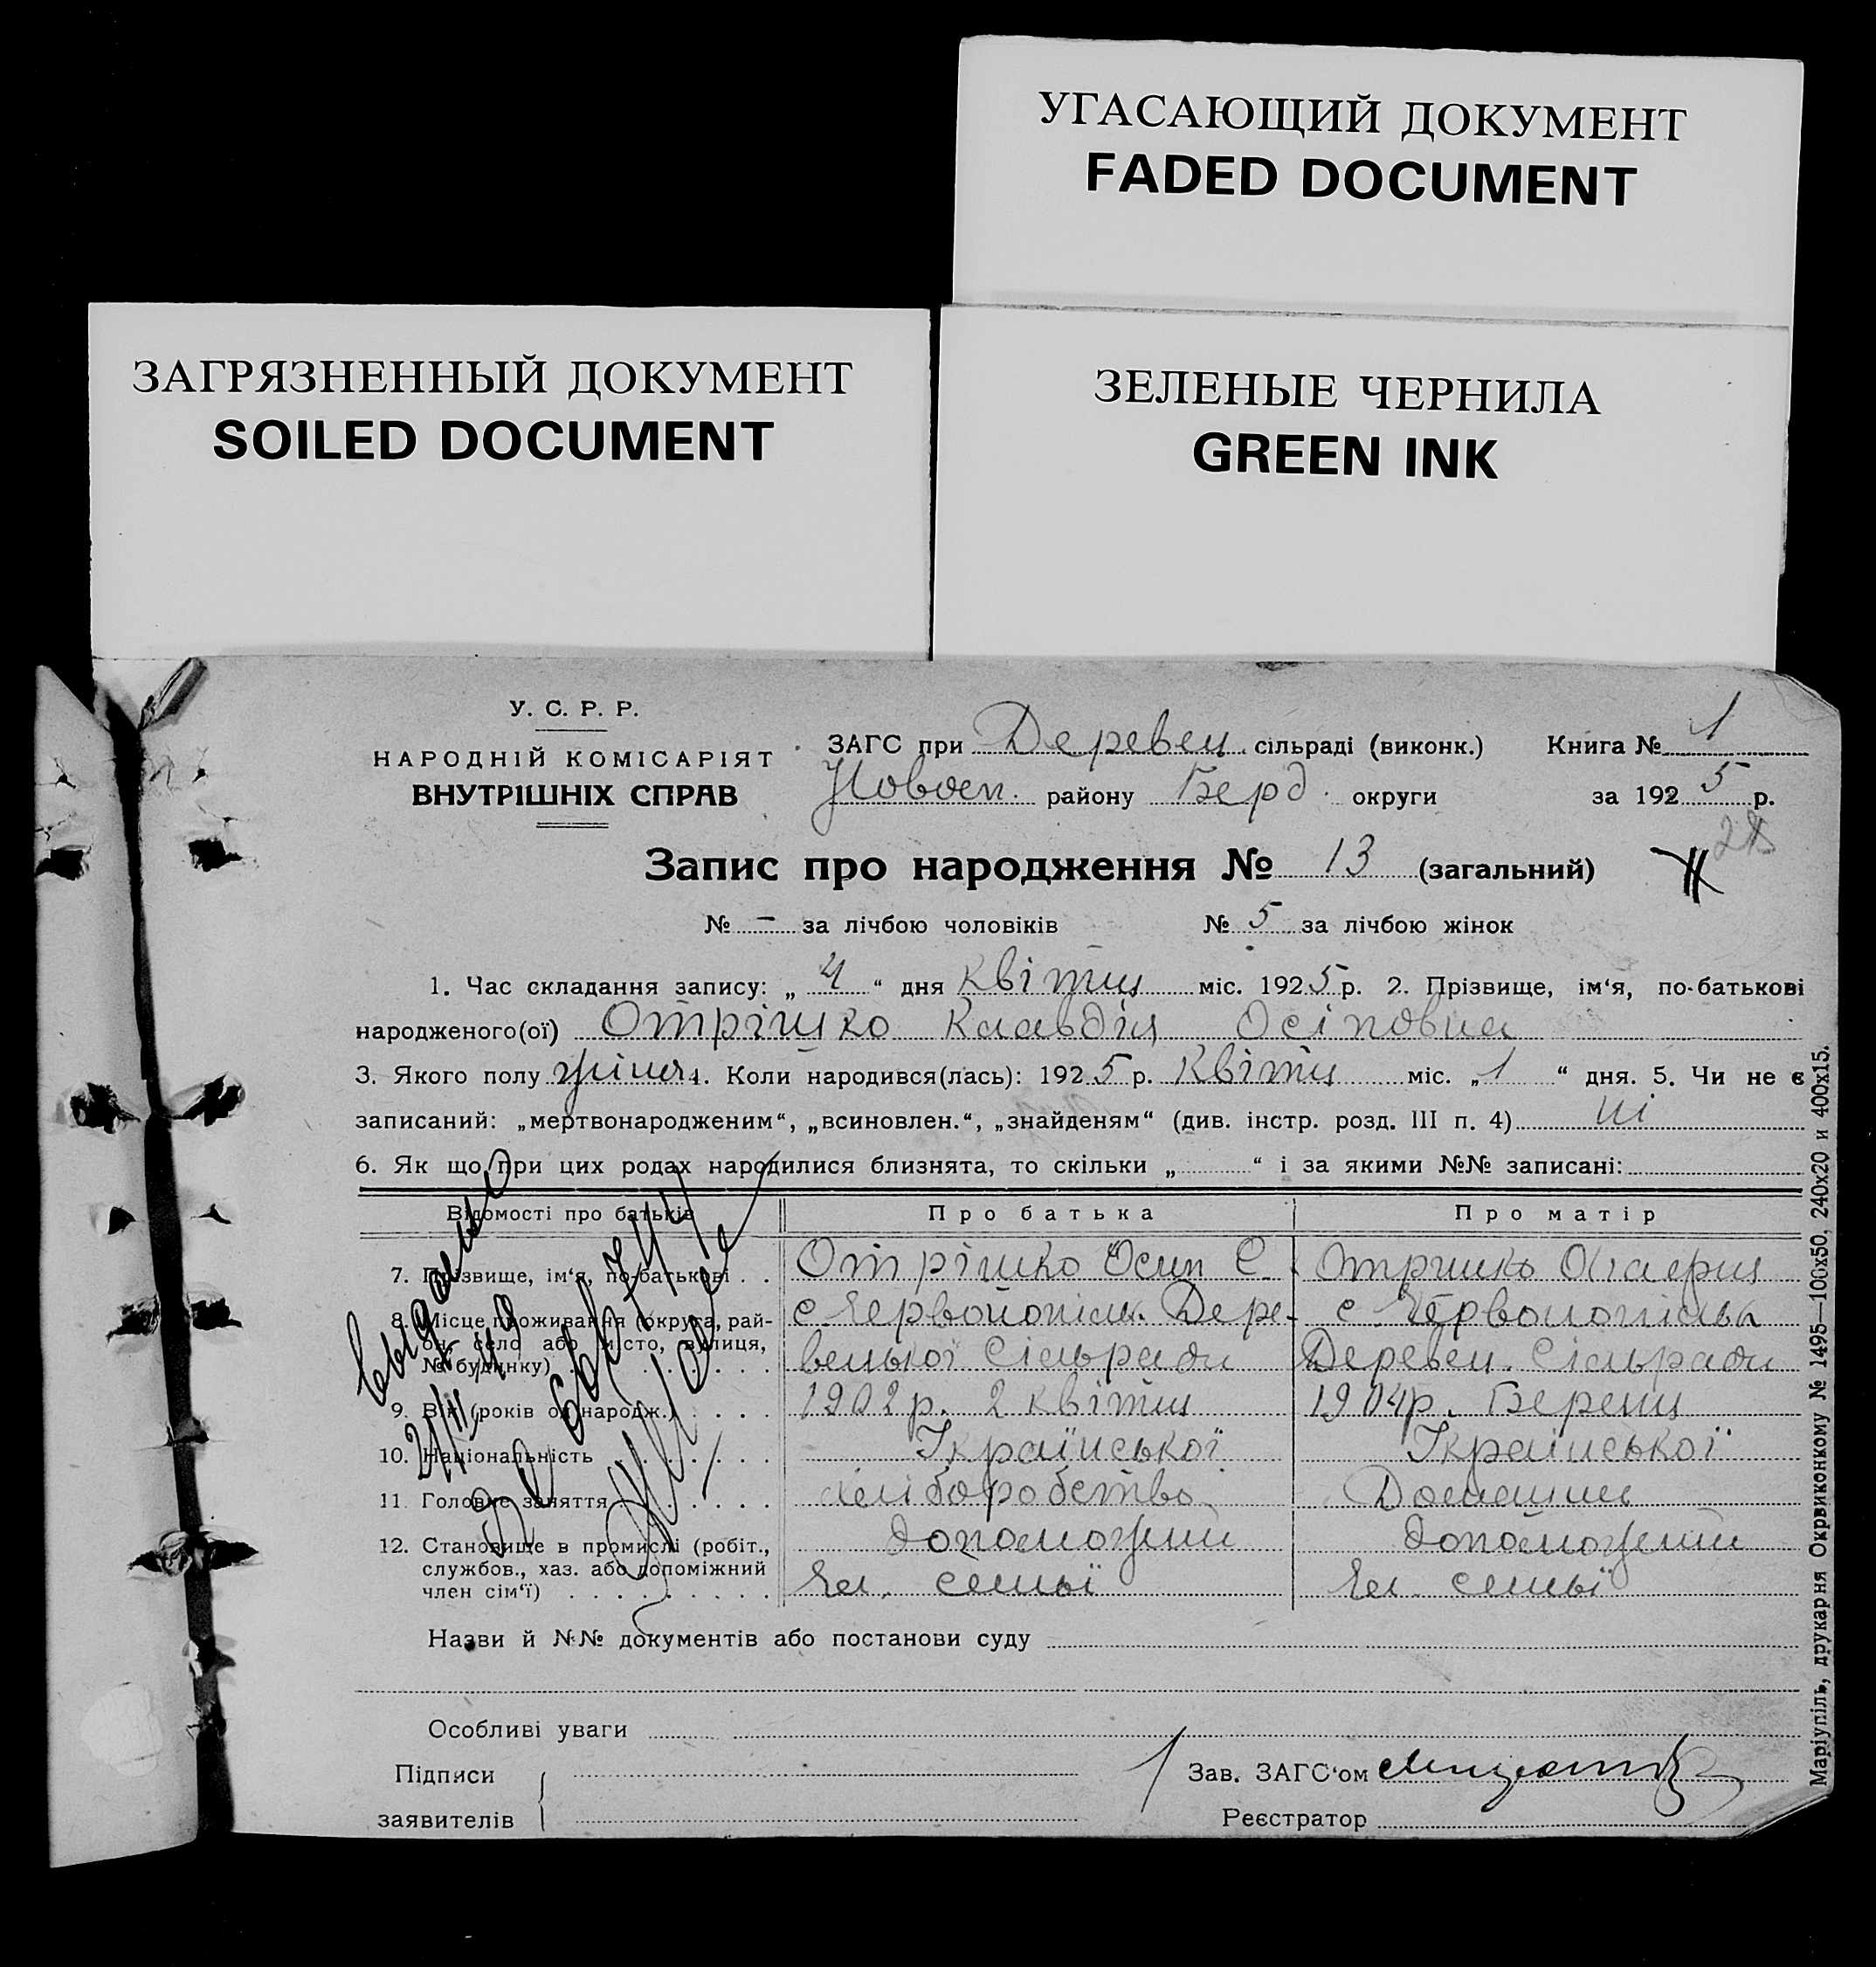 УГАСАЮЩИЙ ДОКУМЕНТ
FADED DOCUMENT
ЗАГРЯЗНЕННЫЙ ДОКУМЕНТ
SOILED DOCUMENT
ЗЕЛЕНЫЕ ЧЕРНИЛА
GREEN INK
У. С. Р. Р.
НАРОДНІЙ КОМІСАРІЯТ
ВНУТРІШНІХ СПРАВ
ЗАГС при Деревец. сільраді (виконк.) Книга № 1
Новосп. району Берд. округи за 1925 р.
Запис про народження № 13 (загальний)
№ – за лічбою чоловіків № 5 за лічбою жінок
1. Час складання запису: „ 4 “ дня квітня міс. 1925 р. 2. Прізвище, ім‘я, по-батькові
народженого(ої) Отрішко Клавдія Осіповна
3. Якого полу жіноч. 4. Коли народився(лась): 1925 р. Квітня міс. „ 1 “ дня. 5. Чи не є
записаний: „мертвонародженим“, „всиновлен.“, „знайденям“ (див. інстр. розд. III п. 4) ні
6. Як що при цих родах народилися близнята, то скільки „ “ і за якими №№ записані:
Відомості про батьків Про батька Про матір
7. Прізвище, ім‘я, по-батькові . . Отрішко Осип С. Отришко
8. Місце проживання (округа, рай- с Червонопільк. Дере- с Червонопільк
он, село або місто, вулиця,
№ будинку) вецької Сільради Деревец. Сільради
9. Вік (років од народж.) 1902 р. 2 квітня 1904р. Березня
10. Національність Української Української
11. Головне заняття хліборобство Домашнє
12. Становище в промислі (робіт., допоможний допоможний
службов., хаз. або допоміжний
член сім‘ї) Чл. семьї Чл. семьї
Назви й №№ документів або постанови суду
Особливі уваги
Підписи
заявителів
Зав. ЗАГС‘ом
Реєстратор
Маріупіль, друкарня Окрвиконкому № 1495—100x50, 240x20 и 400x15.